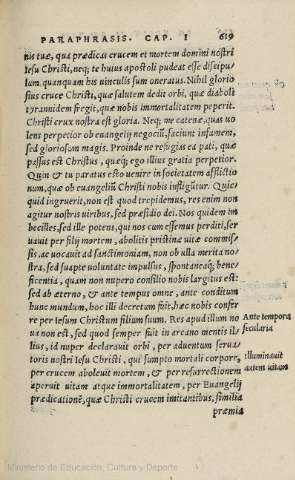 PARAPHRASIS. CAP. I 619
nis tuæ, qua prædicas crucem et mortem domini nostri
Iesu Christi, neq; te huius apostoli pudeat esse discipu-
lum, quanquam his uinculis sum oneratus. Nihil glorio
sius cruce Christi, quæ salutem dedit orbi, quæ diaboli
tyrannidem fregit, quæ nobis immortalitatem peperit.
Christi crux nostra est gloria. Neq; me catenæ, quas uo
lens perpetior ob euangelij negociũ, faciunt infamem,
sed gloriosum magis. Proinde ne refugias ea pati, quæ
passus est Christus, quæq; ego illius gratia perpetior.
Quin & tu paratus esto uenire in societatem afflictio
num, quæ ob euangeliũ Christi nobis infligũtur. Quic
quid ingruerit, non est quod trepidemus, res enim non
agitur nostris uiribus, sed præsidio dei. Nos quidem im
becilles, sed ille potens, qui nos cum essemus perditi, ser
uauit per filij mortem, abolitis pristinæ uitæ commis
sis, ac uocauit ad sanctimoniam, non ob ulla merita no
stra, sed suapte uoluntate impulsus, spontaneaq; bene
ficentia, quam non nupero consilio nobis largitus est:
sed ab æterno, & ante tempus omne, ante conditum
hunc mundum, hoc illi decretum fuit, hæc nobis confer
re per Iesum Christum filium suum. Res apud illum no
Ante tempora
ua non est, sed quod semper fuit in arcano mentis il
sæcularia
lius, id nuper declarauit orbi, per aduentum serua
toris nostri Iesu Christi, qui sumpto mortali corpore,
Illuminauit
per crucem aboleuit mortem, & per resurrectionem
autem uitam
aperuit uitam atque immortalitatem, per Euangelij
prædicationẽ, quæ Christi crucem imitantibus, similia
præmia
Ministerio de Educación, Cultura y Deporte